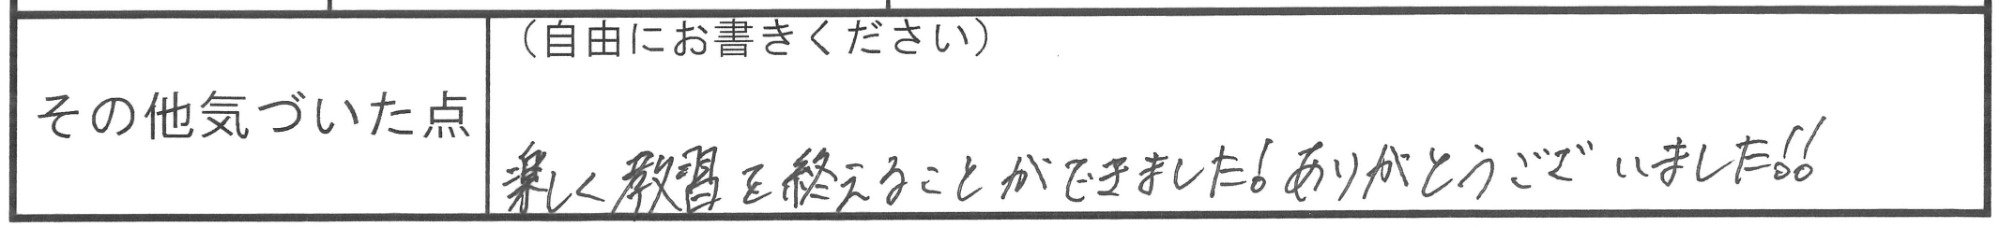 （自由にお書きください）
その他気づいた点
楽しく教習を終えることができました!ありがとうございました!!